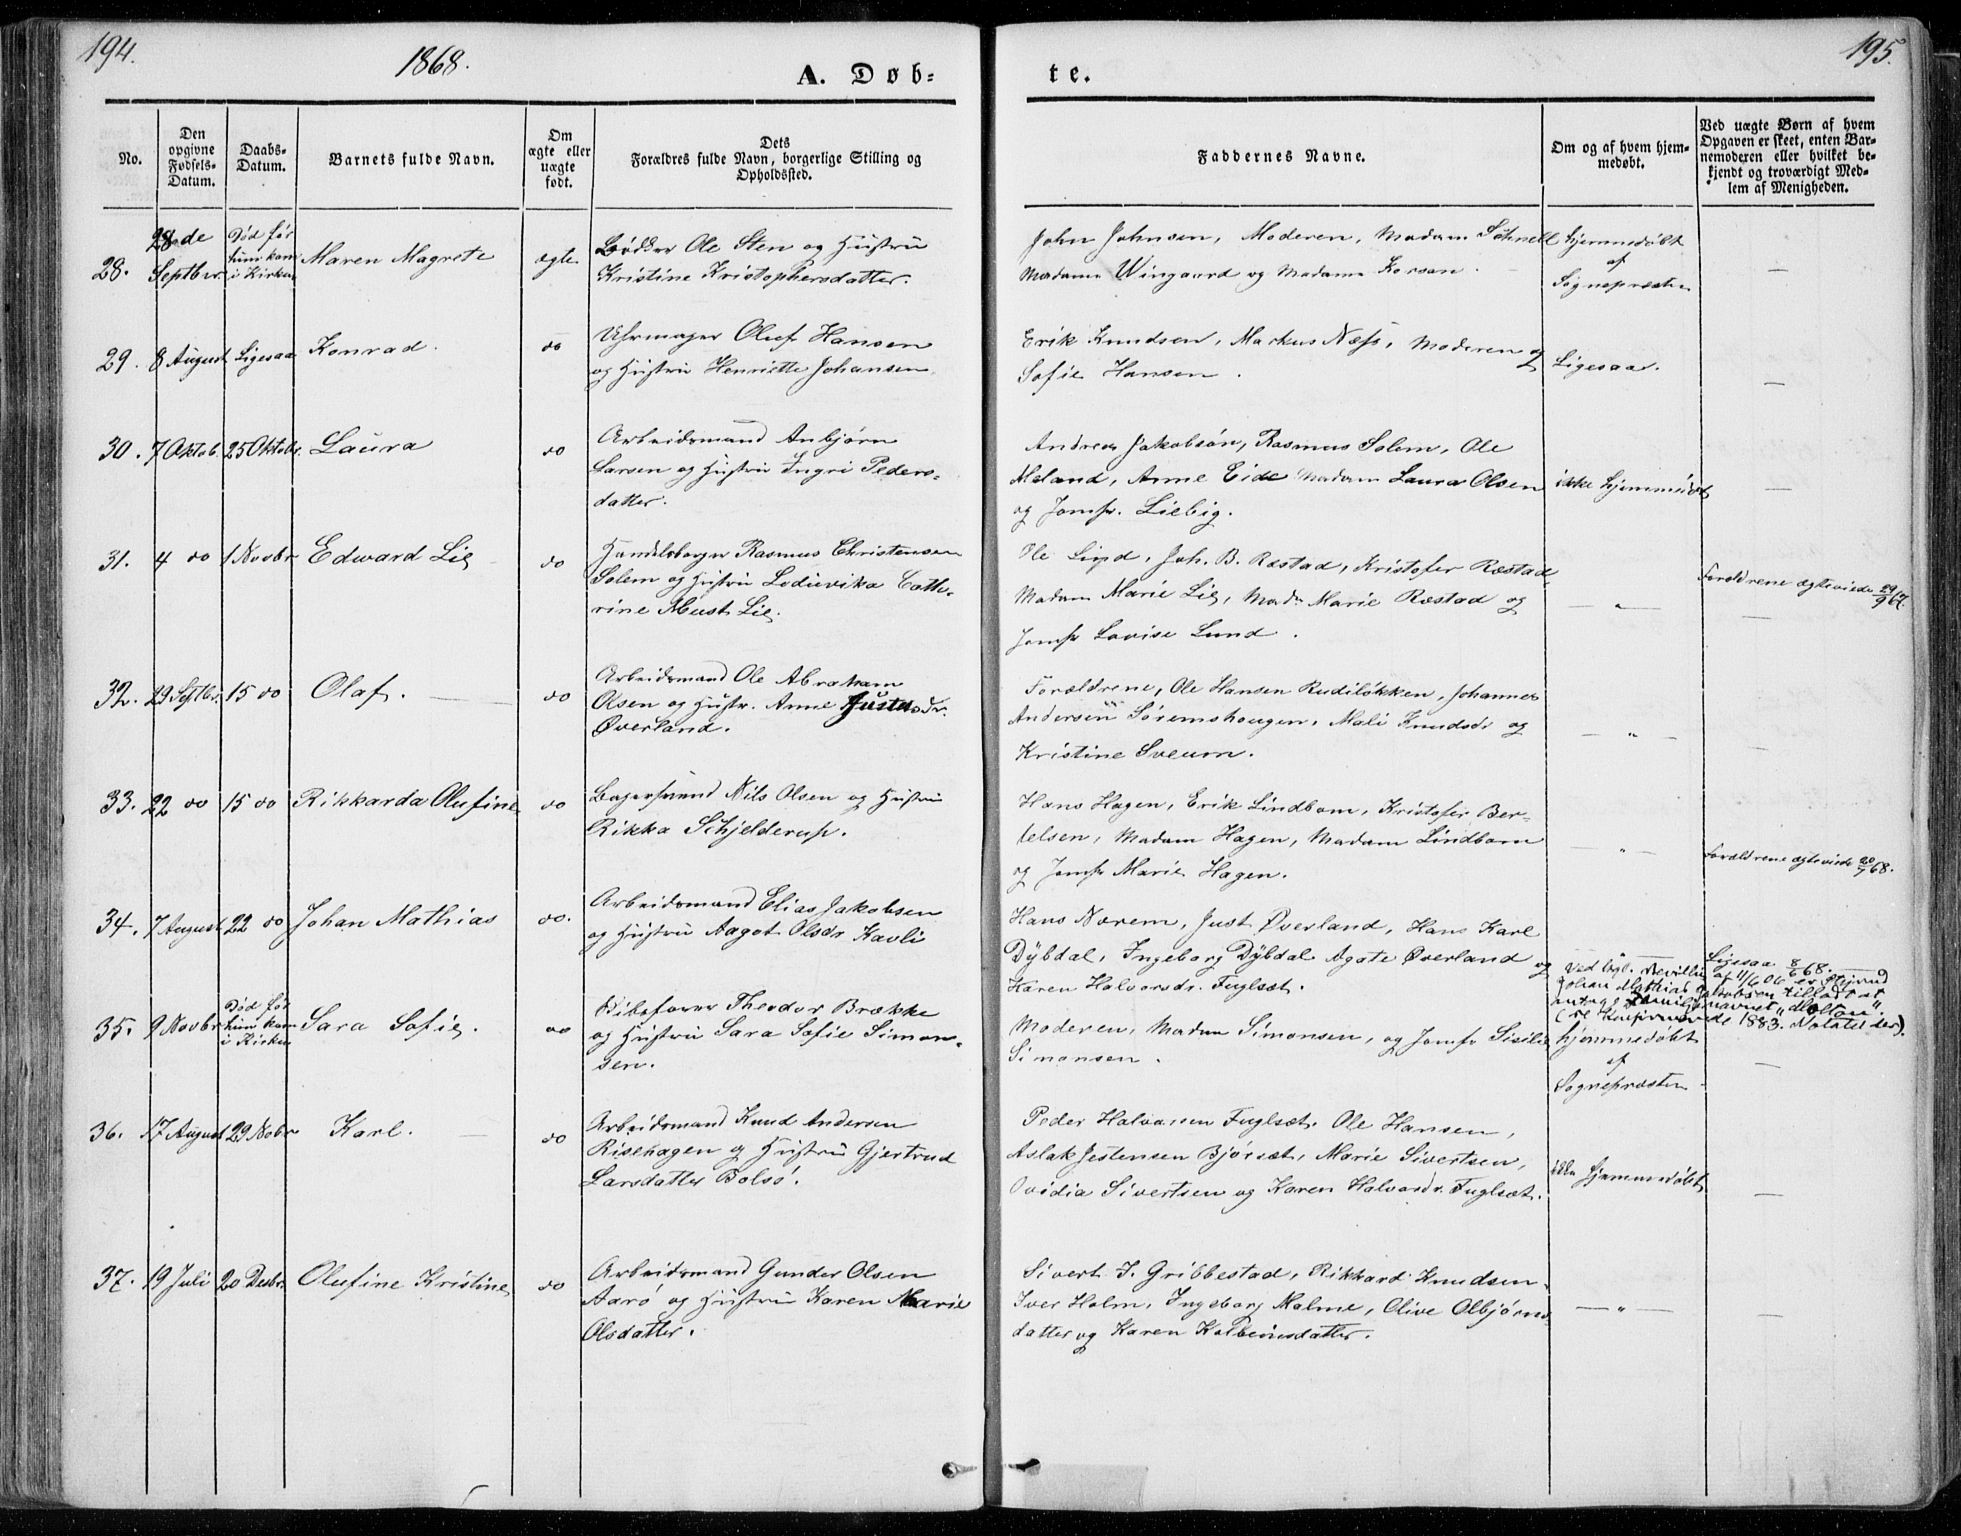 194.
1868.
A. Døb-
te.
195.
No.
Den opgivne Fødsels-Datum.
Daabs-Datum.
Barnets fulde Navn.
Om ægte eller uægte født.
Dets Forældres fulde Navn, borgerlige Stilling og Opholdssted.
Faddernes Navne.
Om og af hvem hjem-medøbt.
Ved uægte Børn af hvem Opgaven er skeet, enten Bar-nemoderen eller hvilket be-kjendt og troværdigt Med-lem af Menigheden.
28. 28de Septbr. Død før hun kom i Kirken Maren Magrete ægte
Bødker Ole Sten og Hustru
Kristine Kristophersdatter.
John Johnsen, Moderen, Madam Schnell
Madame Wingaard og Madame Korsen.
hjemmedøbt
af
Sognepresten
—
29. 8 August Ligesaa Konrad. do
Uhrmager Oluf Hansen
og Hustru Henriette Johansen
Erik Knudsen, Markus Næss, Moderen og
Sofie Hansen.
Ligesaa.
—
30. 7 Oktob. 25 Oktobr. Laura do
Arbeidsmand Anbjørn
Larsen og Hustru Ingri Peders-
datter.
Andreas Jakobsøn, Rasmus Solem, Ole
Meland, Anne Eide Madam Laura Olsen
og Jomfr. Liebig.
ikke hjemmedøbt
—
31. 4 do 1 Novbr Edward Lie do
Handelsborger Rasmus Christensen
Solem og Hustru Lodievika Cathe-
rine Must Lie.
Ole Lind, Joh. B. Ræstad, Kristofer Ræstad,
Madam Marie Lie, Madm Marie Ræstad og
Jomfr Lovise Lund.
— „ —
Forældrene ægteviede 29/9 67.
—
32. 29 Septbr. 15 do Olaf. do
Arbeidsmand Ole Abraham
Olsen og Hustr. Anne Justusdr.
Øverland.
Forældrene, Ole Hansen Rudiløkken, Johannes
Andersen Søremshougen, Mali Knudsdr og
Kristine Sveum.
— „ —
—
33. 22 do 15 do Rikkarda Olufine do
Bagersvend Nils Olsen og Hustru
Rikka Schjelderup.
Hans Hagen, Erik Lindbom, Kristofer Ber-
telsen, Madam Hagen, Madam Lindbom
og Jomfr Marie Hagen.
— „ —
Forældrene ægteviede 20/7 68.
34. 7 August 22 do Johan Mathias do.
Arbeidsmand Elias Jakobsen
og Hustru Aagot Olsdr Kavli
Hans Norem, Just Øverland, Hans Karl
Dÿbdal, Ingeborg Dÿbdal, Agate Øverland og
Karen Halvorsdr. Fuglset.
— „ —
Ligesaa 8/6 68.
Ved kgl. Bevilling af 11/6 06 er
Johan Mathias Jakobsen tilladt at
antage Familienavnet „Moltau".
(se Konfirmerede 1883. Notatet der).
35. 9 Novbr Død før hun kom i Kirken Sara Sofie. do
Vibefører Theodor Brække
og Hustru Sara Sofie Simon-
sen.
Moderen, Madam Simonsen, og Jomfr Sisilie
Simonsen.
hjemmedøbt
af
Sognepresten
—
36. 17 August 29 Nobr Karl. do
Arbeidsmand Knud Andersen
Risehagen og Hustru Gjertrud
Larsdatter Bolsø.
Peder Halvorsen Fuglset, Ole Hansen,
Aslak Jestensen Bjørset, Marie Sivertsen,
Ovidia Sivertsen og Karen Halvorsdr. Fuglset.
ikke hjemmedøbt
—
37. 19 Juli 20 Desbr. Olufine Kristine do
Arbeidsmand Gunder Olsen
Aarø og Hustru Karen Marie
Olsdatter.
Sivert J. Gribbestad, Rikkard Knudsen
Iver Holm, Ingeborg Malme, Olive Olbjørns-
datter og Karen Kolbeinsdatter.
— „ —
—